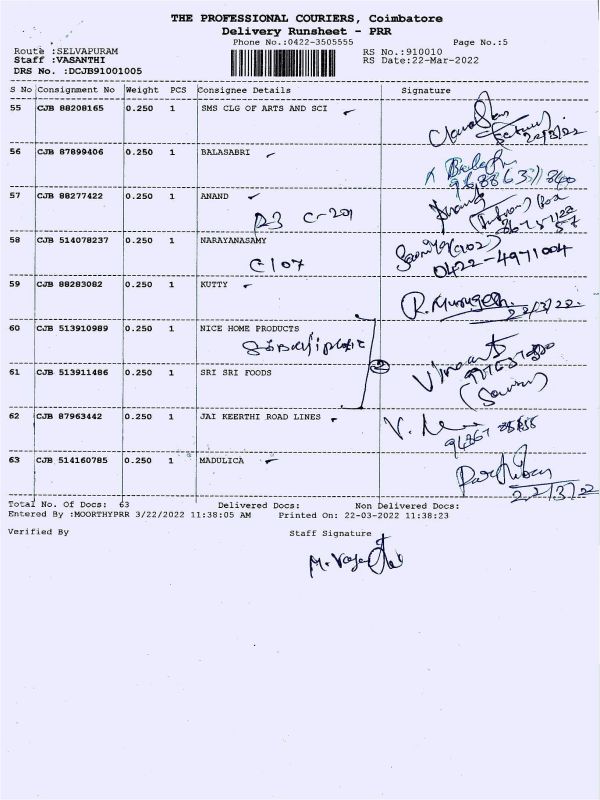 THE PROFESSIONAL COURIERS, Coimbatore
Delivery Runsheet - PRR
Phone No.:0422-3505555 Page No.:5
Route :SELVAPURAM RS No.:910010
Staff :VASANTHI RS Date:22-Mar-2022
DRS No. :DCJB91001005
S No Consignment No Weight PCS Consignee Details Signature
55 CJB 88208165 0.250 1 SMS CLG OF ARTS AND SCI
22/3/22
56 CJB 87899406 0.250 1 BALASABRI
57 CJB 88277422 0.250 1 ANAND
D3 C-201
58 CJB 514078237 0.250 1 NARAYANASAMY
C107 0422-4971004
59 CJB 88283082 0.250 1 KUTTY
R. Murugesh 22/3/22
60 CJB 513910989 0.250 1 NICE HOME PRODUCTS
2
61 CJB 513911486 0.250 1 SRI SRI FOODS
62 CJB 87963442 0.250 1 JAI KEERTHI ROAD LINES
63 CJB 514160785 0.250 1 MADULICA
22/3/22
Total No. Of Docs: 63 Delivered Docs: Non Delivered Docs:
Entered By :MOORTHYPRR 3/22/2022 11:38:05 AM Printed On: 22-03-2022 11:38:23
Verified By Staff Signature